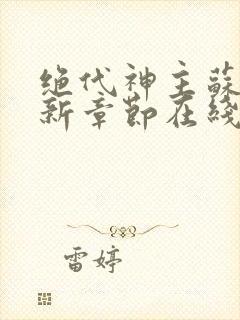 绝代神主蘇
新章節在綫
雷婷